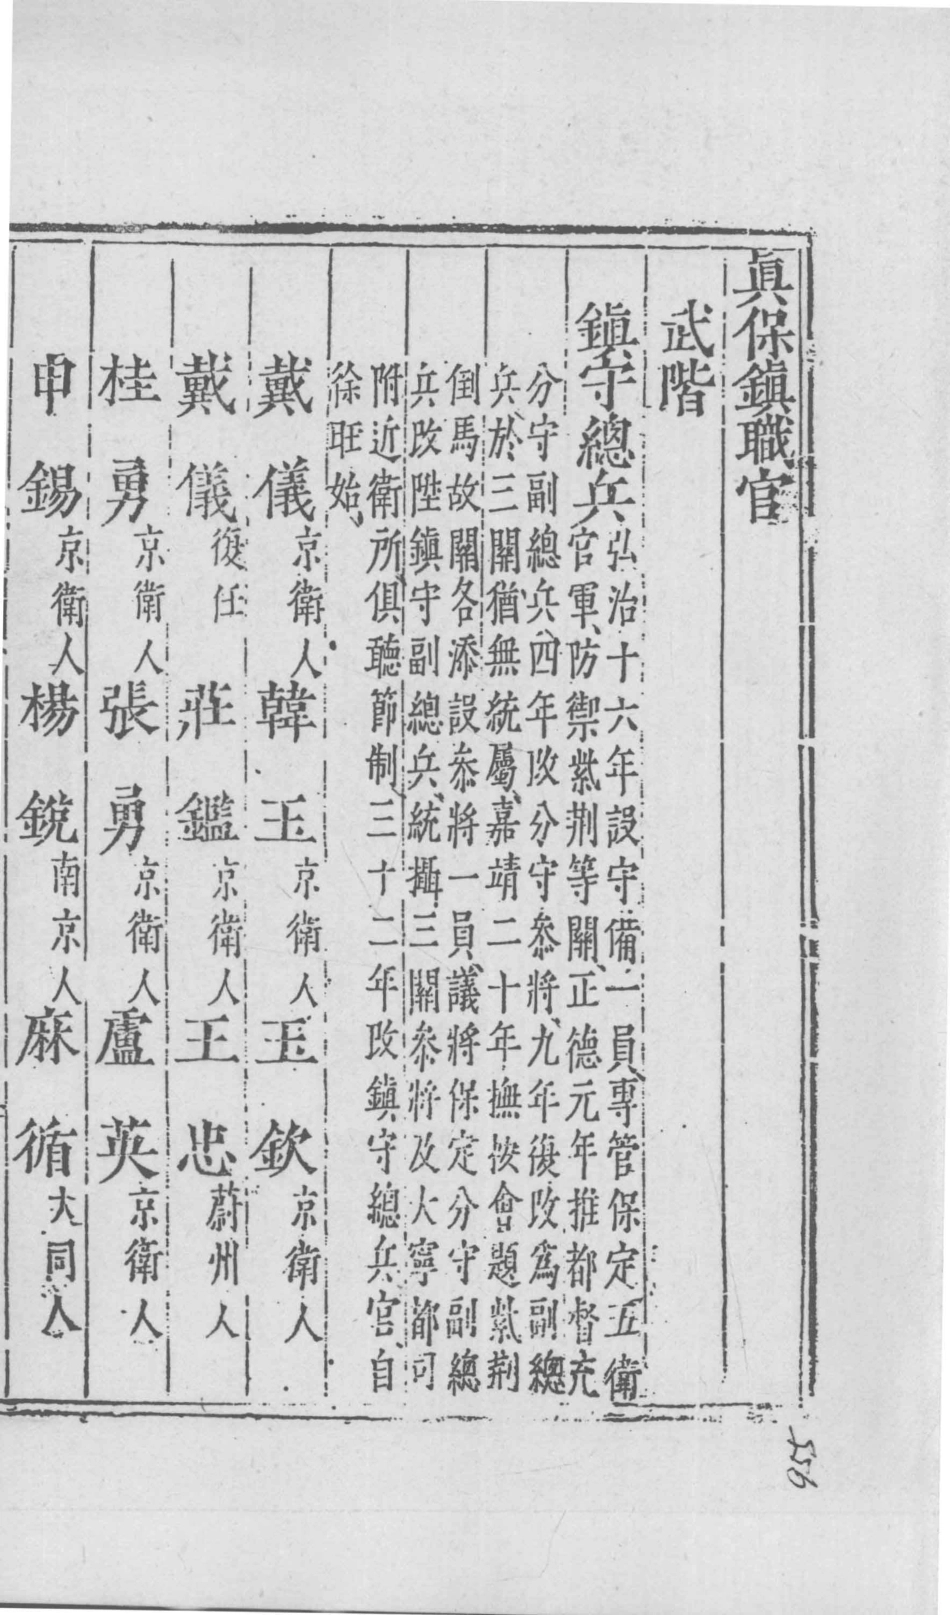 眞保鎭職官
武階
鎭守總兵弘治十六年設守備一員專管保定五衛
官軍防禦紫荆等關正德元年推都督充
分守副總兵四年改分守叅將九年復改爲副總
兵於三關猶無統屬嘉靖二十年撫按會題紫荆
倒馬故關各添設叅將一員議將保定分守副總
兵改陞鎭守副總兵統攝三關叅將及大寧都司
附近衛所俱聽節制三十二年改鎭守總兵官自
徐玨始
戴儀京衛人 韓玉京衛人 王欽京衛人
戴儀復任 莊鑑京衛人 王忠蔚州人
桂勇京衛人 張勇京衛人 盧英京衛人
申錫京衛人 楊銳南京人 麻循大同人
556